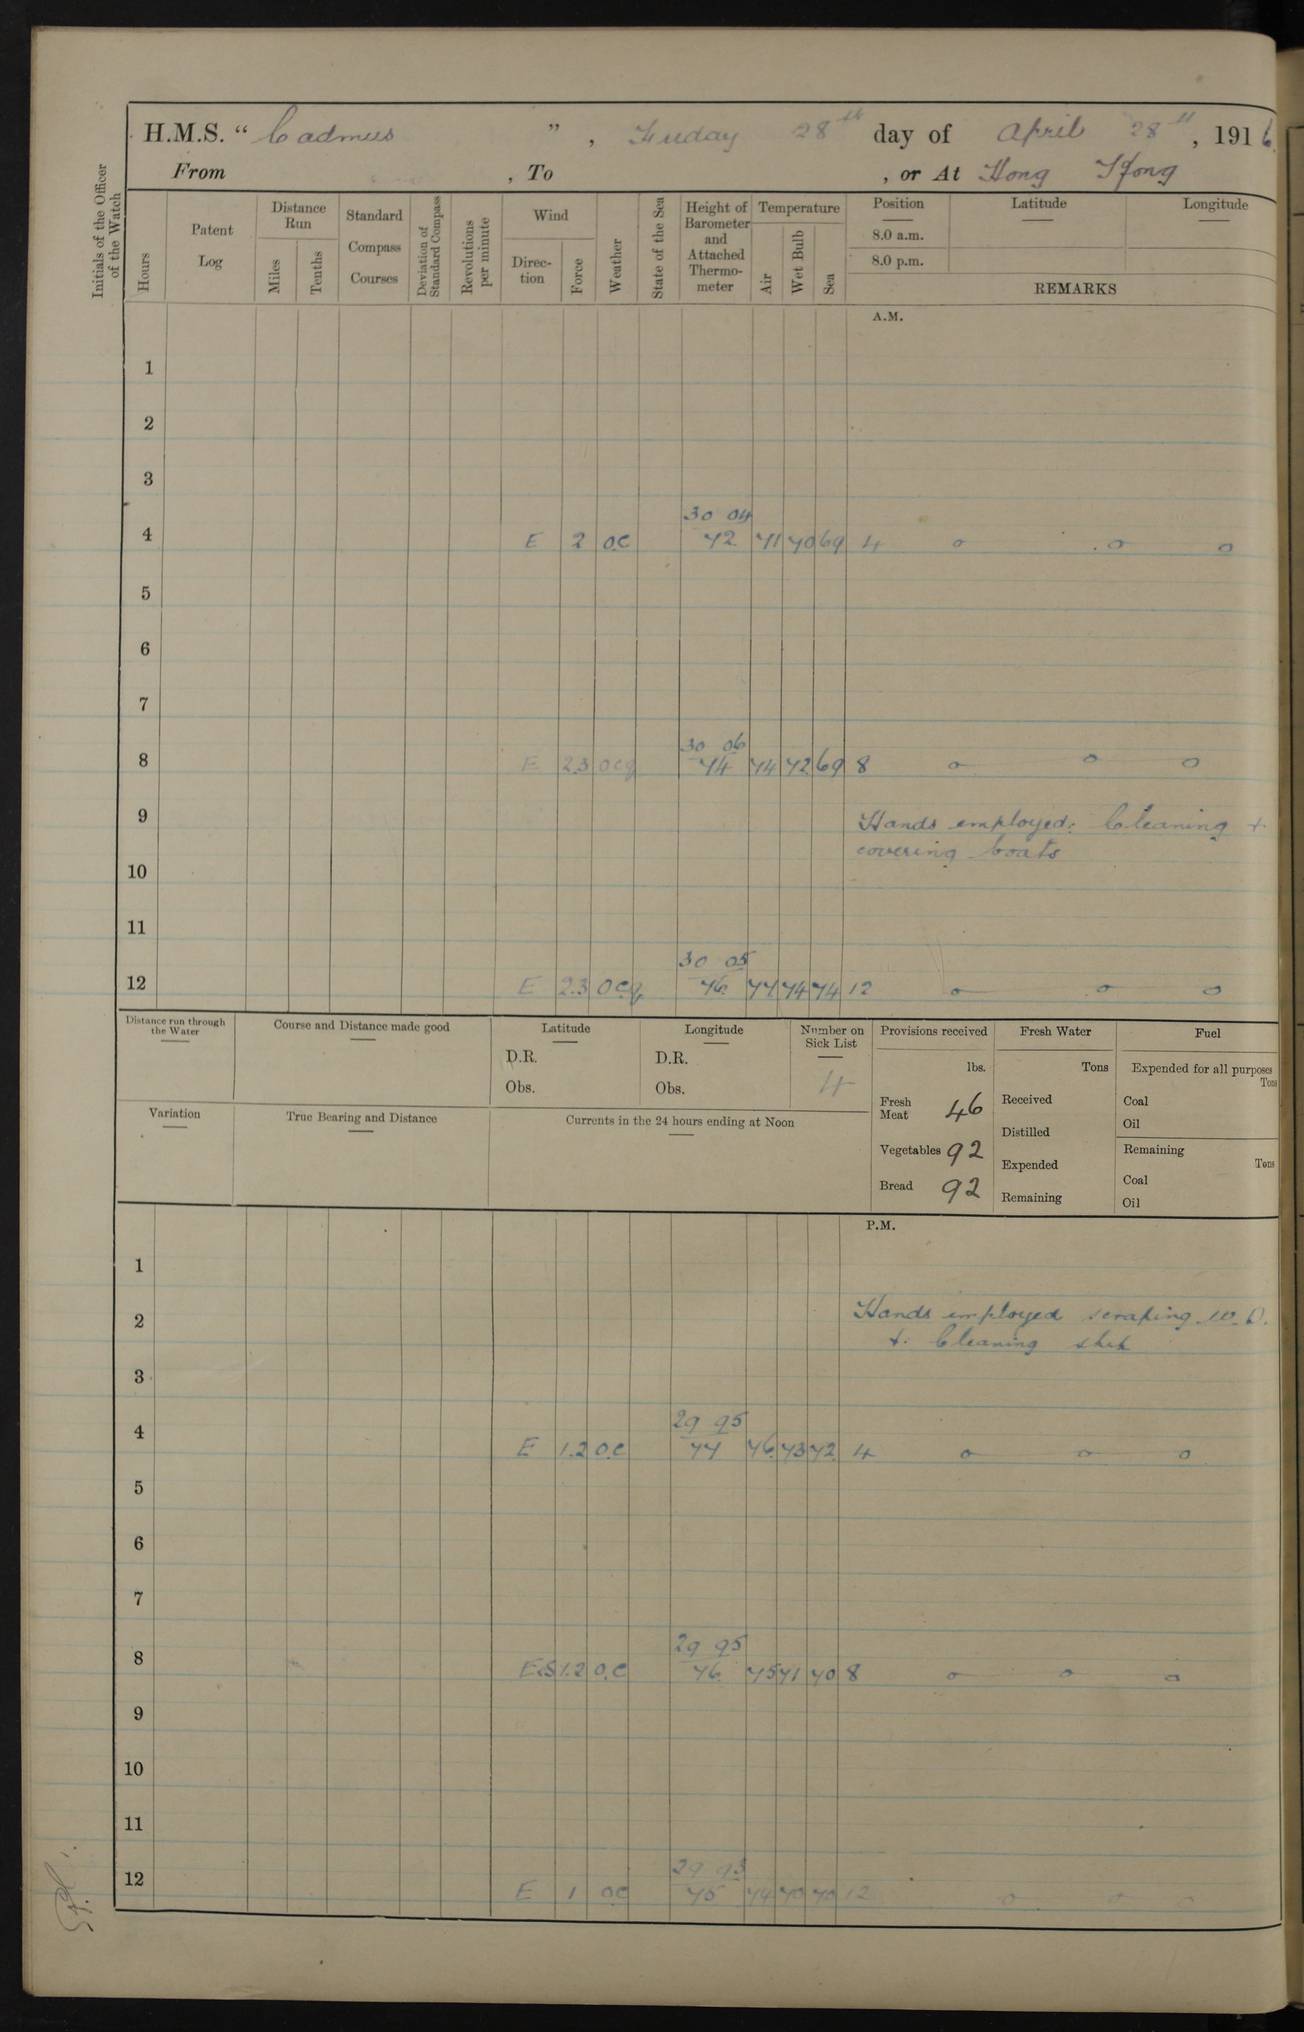 H.M.S. “ Cadmus ” , Friday 28th day of April 28th , 1916
From , To , or At Hong Kong
Initials of the Officer of the Watch
Hours
Patent Log
Distance Run
Miles
Tenths
Standard Compass Courses
Deviation of Standard Compass
Revolutions per minute
Wind
Direction
Force
Weather
State of the Sea
Height of Barometer and Attached Thermometer
Temperature
Air
Wet Bulb
Sea
Position
8.0 a.m.
8.0 p.m.
Latitude
Longitude
REMARKS
A.M.
1
2
3
30 04
4 E 2 O.C 72 71 70 69 4 o o o
5
6
7
30 06
8 E 2.3 O c q 74 74 72 69 8 o o o
9 Hands employed: Cleaning +
covering boats
10
11
30 05
12 E 2.3 O c q 76 77 74 74 12 o o o
Distance run through the Water
Course and Distance made good
Latitude
D.R.
Obs.
Longitude
D.R.
Obs.
Number on Sick List
4
Provisions received
lbs.
Fresh Meat 46
Vegetables 92
Bread 92
Fresh Water
Tons
Received
Distilled
Expended
Remaining
Fuel
Expended for all purposes
Tons
Coal
Oil
Remaining
Tons
Coal
Oil
Variation
True Bearing and Distance
Currents in the 24 hours ending at Noon
P.M.
1
2 Hands employed scraping
+ Cleaning ship
3
29 95
4 E 1.2 O.C 77 76 73 72 4 o o o
5
6
7
29 95
8 1.2 O.C 76 75 71 70 8 o o o
9
10
11
29 93
12 E 1 OC 75 74 70 70 12 o o o